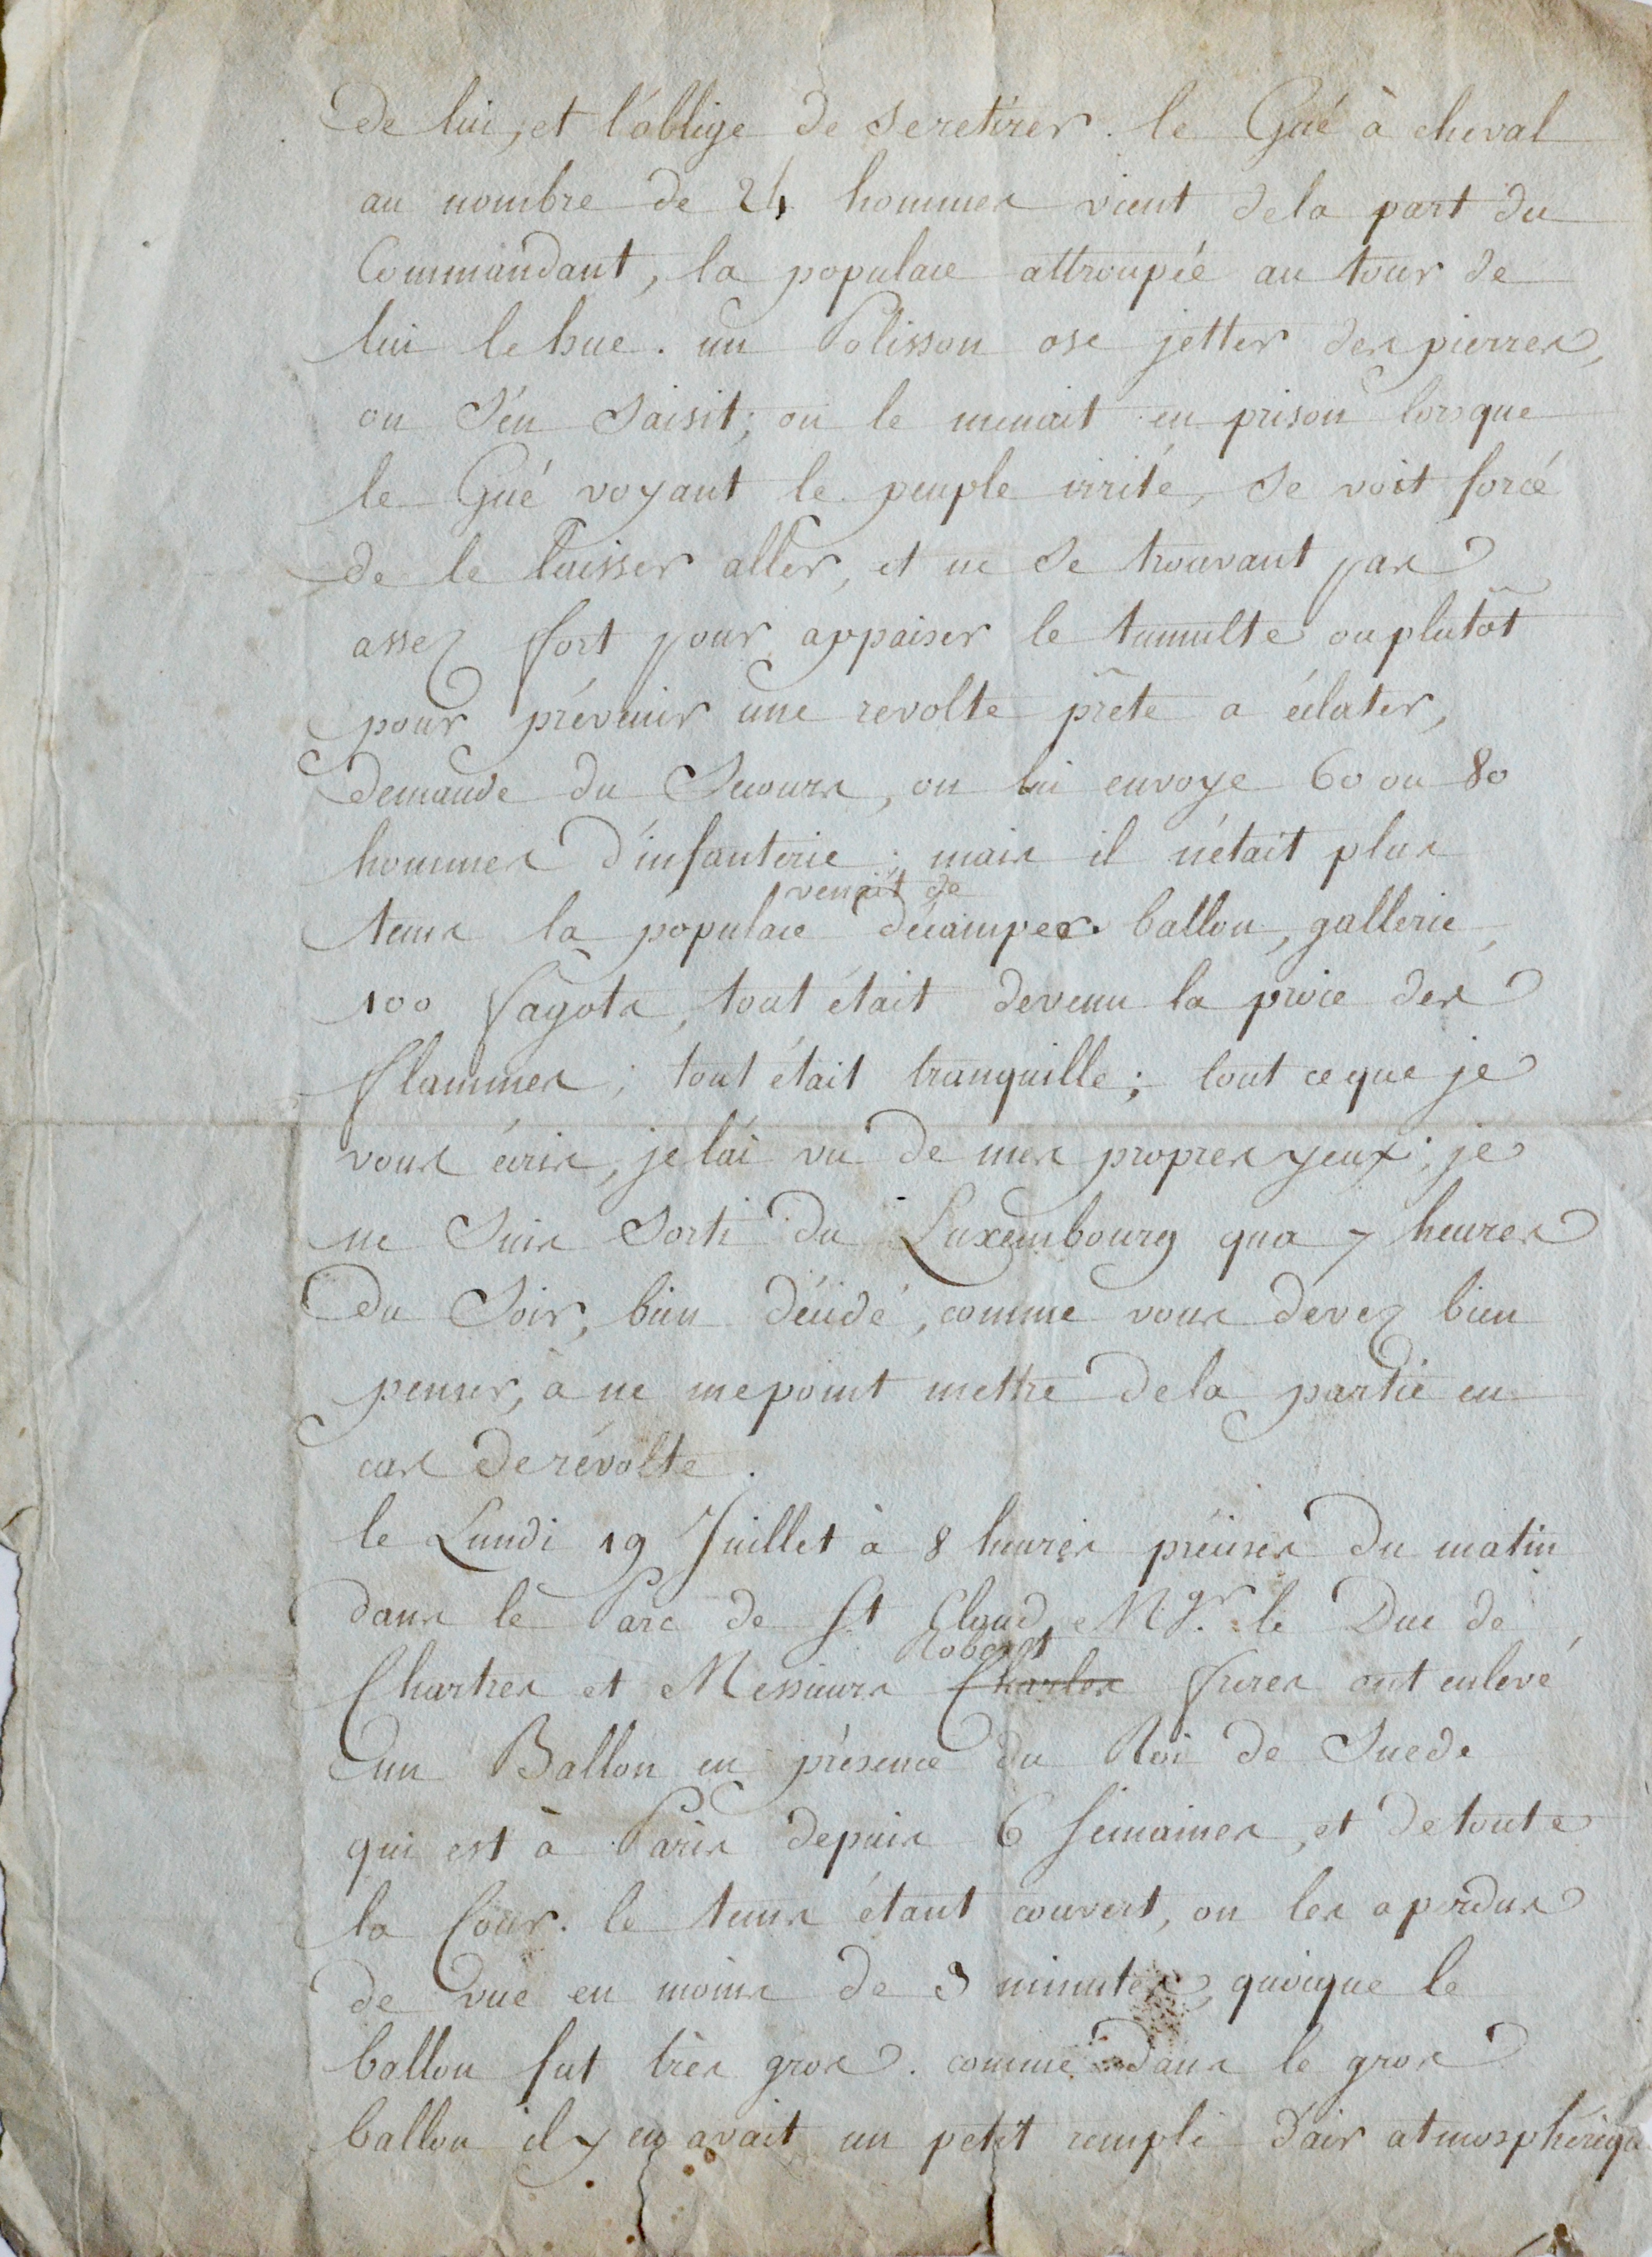 de lui, et l'oblige de se retirer. le Gué à cheval
au nombre de 24 hommes vient de la part du
Commandant, la populace attroupée au tour de
lui le hue. un Polisson ose jetter des pierres,
on s'en saisit; on le menait en prison lorsque
le Gué voyant le peuple irrité, se voit forcé
de le laisser aller, et ne se trouvant pas
assez fort pour appaiser le tumulte ou plutôt
pour prévenir une revolte prête a éclater,
demande du Secours, on lui envoye 60 ou 80
hommes d'infanterie; mais il n'était plus
tems la populace venait de décamper. ballon, gallerie,
100 fagots, tout était devenu la proie des
flammes; tout était tranquille; tout ce que je
vous écris, je l'ai vu de mes propres yeux; je
ne suis sorti du Luxembourg qua 7 heures
du soir, bien décidé, comme vous devez bien
penser, à ne me point mettre de la partie en
cas de révolte.
le Lundi 19 Juillet à 8 heures précises du matin
dans le Parc de St Cloud, Mgr. le Duc de
Chartres et Messieurs Charles Robert freres ont enlevé
un Ballon en présence du Roi de Suede
qui est à Paris depuis 6 semaines, et de toute
la Cour. le tems étant couvert, on les a perdus
de vue en moins de 3 minutes, quoique le
ballon fut très gros. comme dans le gros
ballon il y en avait un petit rempli d'air atmosphérique